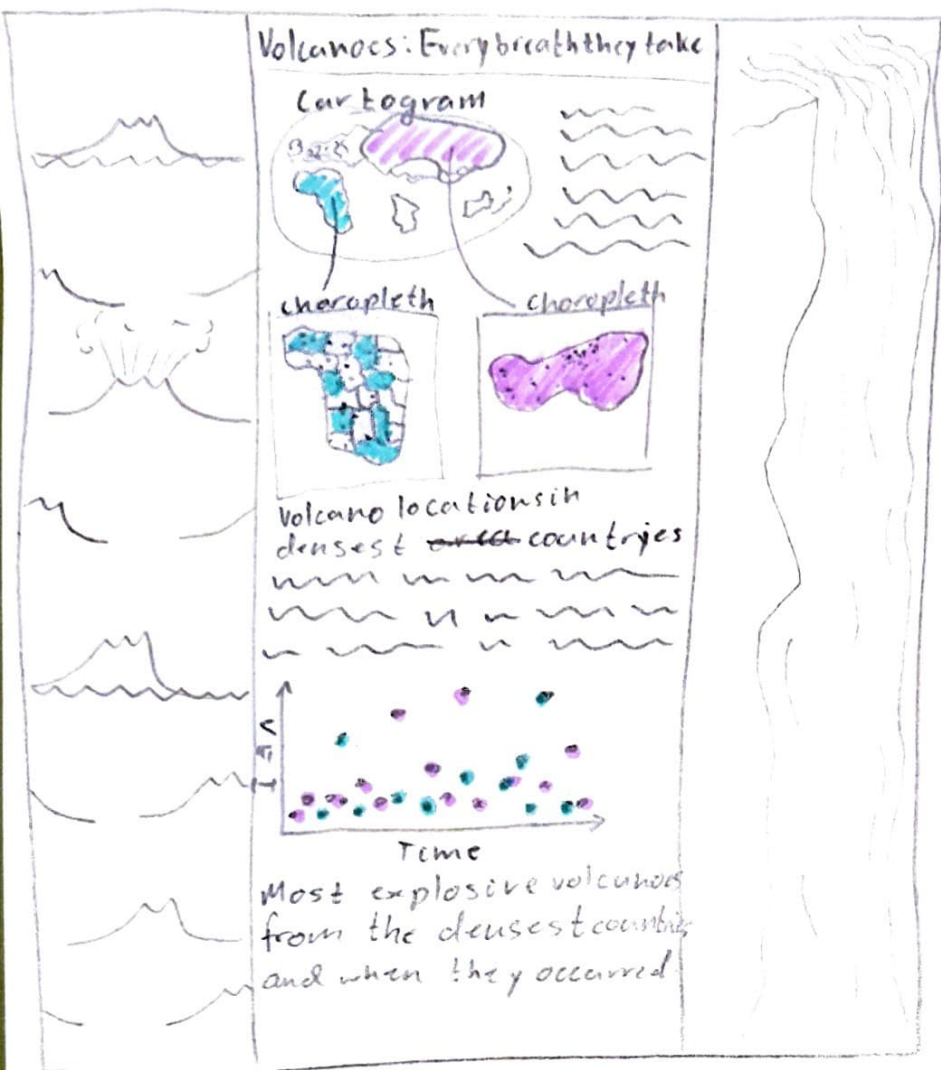 Volcanoes: Every breath they take
Cartogram
choropleth
choropleth
Volcano locations in
densest countries
VEI
Time
Most explosive volcanoes
from the densest countries
and when they occurred